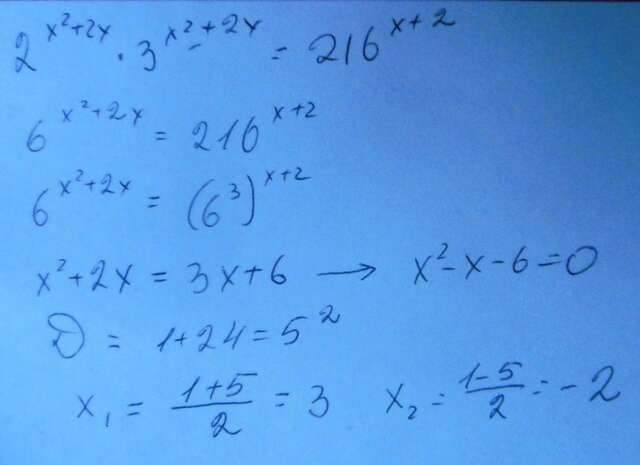 2^{x²+2x} · 3^{x²+2x} = 216^{x+2}
6^{x²+2x} = 216^{x+2}
6^{x²+2x} = (6³)^{x+2}
x²+2x = 3x+6 → x²-x-6=0
D = 1+24=5²
x₁ = (1+5)/2 = 3 x₂ = (1-5)/2 = -2